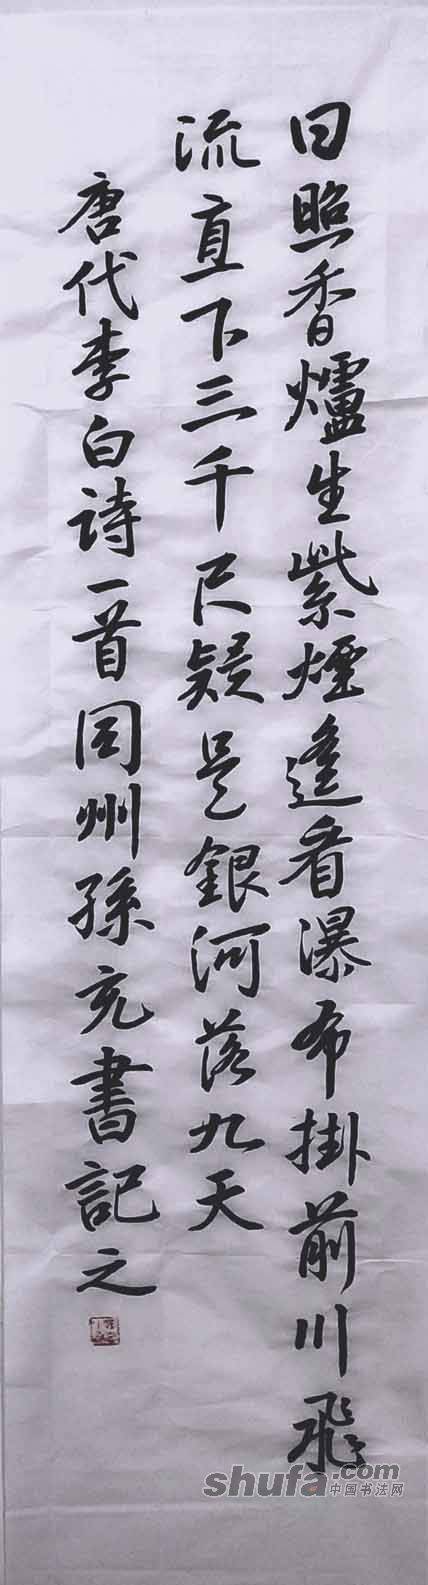 日照香爐生紫煙遙看瀑布掛前川飛
流直下三千尺疑是銀河落九天
唐代李白诗一首同州孫充書記之
shufa.com
中国书法网